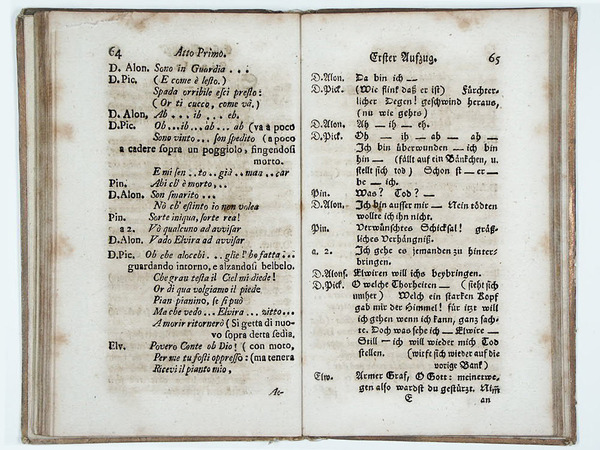 64 Atto Primo.
D. Alon. Sono in Guardia . . .
D. Pic. (E come è lesto.)
Spada orribile esci presto:
(Or ti cucco, come và.)
D. Alon, Ah . . . ih . . . eh.
D. Pic. Oh...ih...àh... ah (va a poco
Sono vinto... son spedito (a poco
a cadere sopra un poggiolo, fingendosi
morto.
E mi sen . . to . . già . . man . . car
Pin. Ahi ch'è morto, . .
D. Alon. Son smarito . . .
Nò ch'estinto io non volea
Pin. Sorte iniqua, sorte rea!
a 2. Vò qualcuno ad avvisar
D. Alon. Vado Elvira ad avvisar
D. Pic. Oh che alocchi . . . glie l'ho fatta...
guardando intorno, e alzandosi belbelo.
Che grau testa il Ciel mi diede!
Or di qua volgiamo il piede
Pian pianino, se si può
Ma che vedo... Elvira ... zitto...
A morir ritornerò (Si getta di nuo-
vo sopra detta sedia.
Elv. Povero Conte oh Dio! (con moto,
Per me tu fosti oppresso: (ma tenera
Ricevi il pianto mio,
Ac-
Erster Aufzug. 65
D. Alon. Da bin ich —
D. Pick. (Wie flink daß er ist) Fürchter-
licher Degen! geschwind heraus,
(nu wie gehts)
D. Alon. Ah — ih — eh.
D. Pick. Oh — ih — ah — ah —
Ich bin überwunden — ich bin
hin — (fällt auf ein Bänkchen, u.
stellt sich tod) Schon st — er —
be — ich.
Pin. Was? Tod? —
D. Alon. Ich bin ausser mir — Nein tödten
wollte ich ihn nicht.
Pin. Verwünschtes Schicksal! gräß-
liches Verhängniß.
a. 2. Ich gehe es jemanden zu hinter-
bringen.
D. Alons. Elwiren will ichs beybringen.
D. Pick. O welche Thorheiten — (sieht sich
umher) Welch ein starken Kopf
gab mir der Himmel! für itzt will
ich gehen wenn ich kann, ganz sach-
te. Doch was sehe ich — Elwire —
Still — ich will wieder mich Tod
stellen. (wirft sich wieder auf die
vorige Bank)
Elw. Armer Graf, O Gott: meinetwe,
gen also wardst du gestürzt. Nim̅
E an